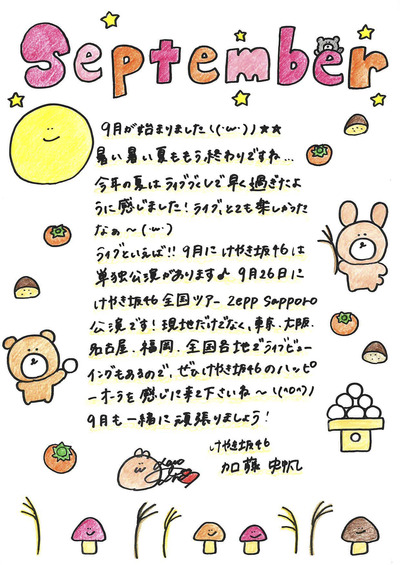 September
9月が始まりました\(・ω・)★★
暑い暑い夏ももう終わりですね...
今年の夏はライブづくしで早く過ぎたよ
うに感じました！ライブ、とても楽しかった
なぁ〜(・ω・)
ライブといえば!! 9月にけやき坂46は
単独公演があります♪ 9月26日に
けやき坂46全国ツアー Zepp Sapporo
公演です！現地だけでなく、東京、大阪、
名古屋、福岡、全国各地でライブビュー
イングもあるので、ぜひけやき坂46のハッピ
ーオーラを感じに来て下さいね〜\(^o^)/
9月も一緒に頑張りましょう！
けやき坂46
加藤 史帆